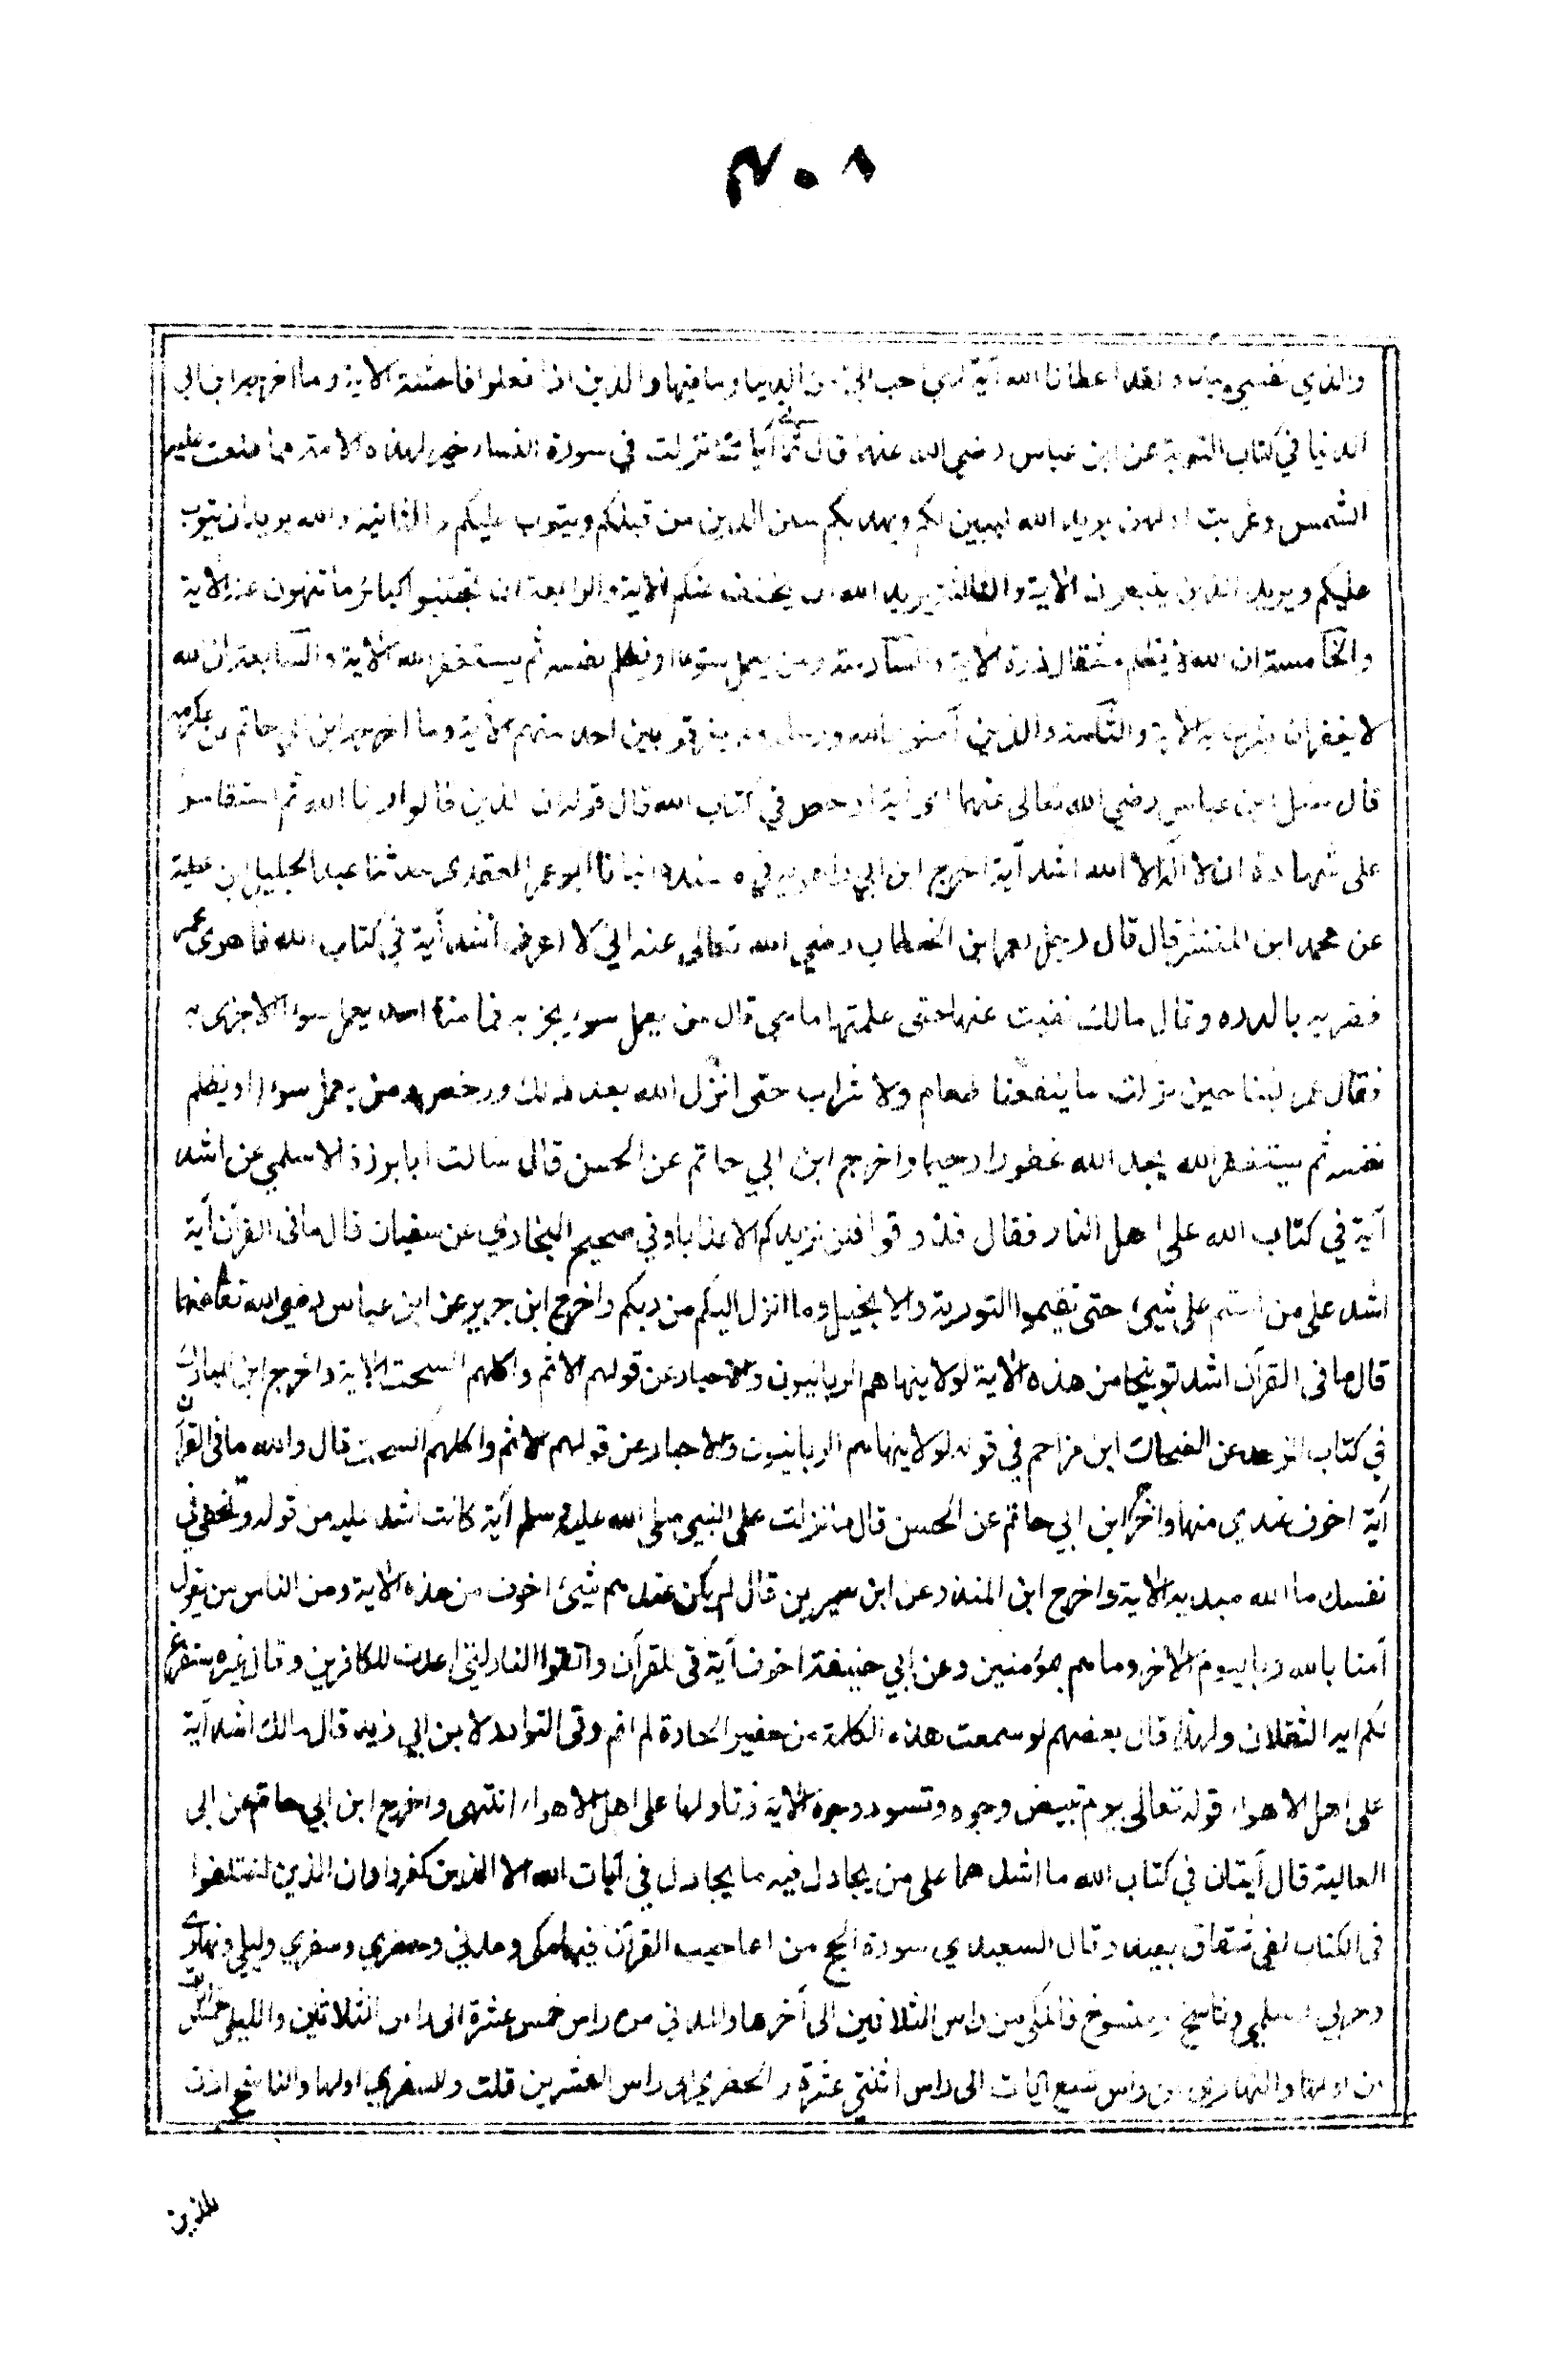 ٣٠٨
والذي نفسي بيده لقد اعطانا الله آية لهي احب الي من الدنيا وما فيها والذين اذا فعلوا فاحشة الاية وما اخرجه ابن ابي
الدنيا في كتاب التوبة عن ابن عباس رضي الله عنهما قال ثمان آيات نزلت في سورة النساء خير لهذه الامة مما طلعت عليه
الشمس وغربت اولهن يريد الله ليبين لكم ويهديكم سنن الذين من قبلكم ويتوب عليكم والثانية والله يريد ان يتوب
عليكم ويريد الذين يتبعون الاية والثالثة يريد الله ان يخفف عنكم الاية والرابعة ان تجتنبوا كبائر ما تنهون عنه الاية
والخامسة ان الله لا يظلم مثقال ذرة الاية والسادسة ومن يعمل سوءا او يظلم نفسه ثم يستغفر الله الاية والسابعة ان الله
لا يغفر ان يشرك به الاية والثامنة والذين آمنوا بالله ورسله ولم يفرقوا بين احد منهم الاية وما اخرجه ابن ابي حاتم عن عكرمة
قال سئل ابن عباس رضي الله تعالى عنهما اي آية ارخص في كتاب الله قال قوله ان الذين قالوا ربنا الله ثم استقاموا
على شهادة ان لا اله الا الله اشد آية اخرج ابن ابي راهويه في مسنده انبانا ابو عمر العقدي حدثنا عبد الجليل ابن عطية
عن محمد ابن المنتشر قال قال رجل لعمر ابن الخطاب رضي الله تعالى عنه اني لا اعرف اشد آية في كتاب الله فاهوى عمر
فضربه بالدره وقال مالك نقبت عنها حتى علمتها ما هي قال من يعمل سوء يجز به فما منا احد يعمل سوء الا جزى به
فقال عمر لبثنا حين نزلت ما ينفعنا طعام ولا شراب حتى انزل الله بعد ذلك ورخص ومن يعمل سوءا او يظلم
نفسه ثم يستغفر الله يجد الله غفورا رحيما واخرج ابن ابي حاتم عن الحسن قال سالت ابا برزة الاسلمي عن اشد
آية في كتاب الله على اهل النار فقال فذوقوا فلن نزيدكم الا عذابا وفي صحيح البخاري عن سفيان قال ما في القرآن آية
اشد علي من لستم على شيئ حتى تقيموا التورية والانجيل وما انزل اليكم من ربكم واخرج ابن جرير عن ابن عباس رضي الله تعا عنهما
قال ما في القرآن اشد توبيخا من هذه الاية لولا ينهاهم الربانيون والاحبار عن قولهم الاثم واكلهم السحت الاية واخرج ابن المبارك
في كتاب الزهد عن الضحاك ابن مزاحم في قوله لولا ينهاهم الربانيون والاحبار عن قولهم الاثم واكلهم السحت قال والله ما في القرآن
آية اخوف عندي منها واخرج ابن ابي حاتم عن الحسن قال ما نزلت على النبي صلى الله عليه وسلم آية كانت اشد عليه من قوله وتخفي في
نفسك ما الله مبديه الاية واخرج ابن المنذر عن ابن سيرين قال لم يكن عندهم شيئ اخوف من هذه الاية ومن الناس من يقول
آمنا بالله وباليوم الاخر وما هم بمؤمنين وعن ابي حنيفة اخوف آية في القرآن واتقوا النار التي اعدت للكافرين وقال غيره سنفرغ
لكم ايه الثقلان ولهذا قال بعضهم لو سمعت هذه الكلمة من خفير الحارة لم انم وفي النوادر لابن ابي زيد قال مالك اشد آية
على اهل الاهواء قوله تعالى يوم تبيض وجوه وتسود وجوه الاية فتاولها على اهل الاهواء انتهى واخرج ابن ابي حاتم عن ابي
العالية قال آيتان في كتاب الله ما اشدهما على من يجادل فيه ما يجادل في آيات الله الا الذين كفروا وان الذين اختلفوا
في الكتاب لفي شقاق بعيد وقال السعيدي سورة الحج من اعاجيب القرآن فيها مكي ومدني وحضري وسفري وليلي ونهاري
وحربي وسلمي وناسخ ومنسوخ فالمكي من راس الثلاثين الى آخرها والمدني من راس خمس عشرة الى راس الثلاثين والليلي خمس آيات
من اولها والنهاري من راس تسع آيات الى راس اثنتي عشرة والحضري الى راس العشرين قلت والسفري اولها والناسخ اذن
للذين